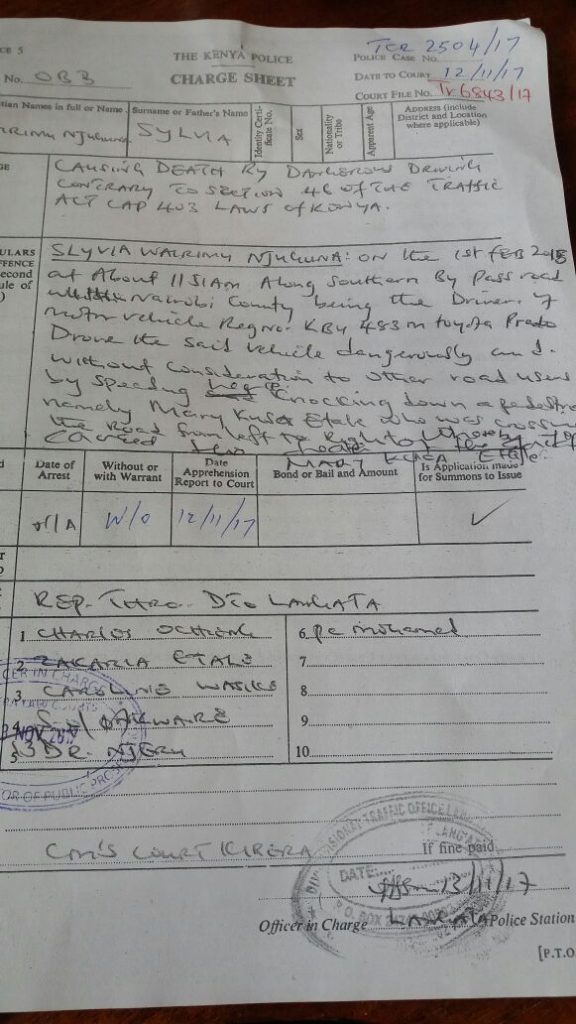 CE 5
THE KENYA POLICE
CHARGE SHEET
POLICE CASE NO. TCR 2504/17
DATE TO COURT 12/11/17
COURT FILE NO. Tr 6843/17
No. OBB
tian Names in full or Name
Surname or Father's Name
Identity Certificate No.
Sex
Nationality or Tribe
Apparent Age
ADDRESS (include District and Location where applicable)
Njuguna
SYLVIA
GE
CAUSING DEATH By DANGEROUS DRIVING
CONTRARY TO SECTION 46 OF THE TRAFFIC
ACT CAP 403 LAWS of KENYA.
ULARS
FFENCE
econd
ule of
)
SLYVIA WAIRIMU NJUGUNA: ON the 1st FEB 2015
at About 1151Am Along Southern By pass road
within Nairobi County being the Driver of
motor vehicle Regno. KBU 483m toyota Prado
Drove the said vehicle dangerously and
without consideration to other road users
by speeding hence knocking down a pedestri
namely Mary Kusa Etale who was crossin
the road from left to Right
caused
MARY KUSA ETALE.
d
Date of Arrest
Without or with Warrant
Date Apprehension Report to Court
Bond or Bail and Amount
Is Application made for Summons to Issue
N/A
W/O
12/11/17
✓
REP. THRO. DTO LANGATA
1 CHARLES OCHIENG
6 pc mohamed
2 ZAKARIA ETALE
7
3 CAROLINE
8
4
9
5 DR. NJERU
10
CER IN CHARGE
NOV 20
OR OF PUBLIC PROS
CM'S COURT KIBERA
TRAFFIC OFFICE
DATE:
P. O. BOX
If fine paid
13/11/17
Officer in Charge LANGATA Police Station
[P.T.O